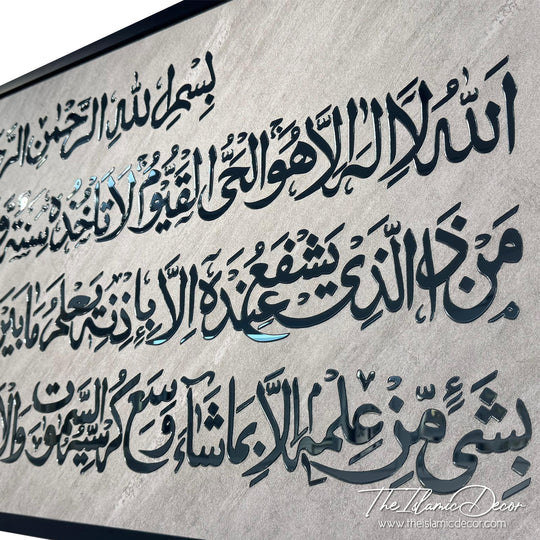 بِسْمِ اللهِ الرَّحْمٰنِ
اَللّٰهُ لَا اِلٰهَ اِلَّا هُوَ الْحَىُّ الْقَيُّوْمُ لَا تَاْخُذُهٗ سِنَةٌ
مَنْ ذَا الَّذِىْ يَشْفَعُ عِنْدَهٗ اِلَّا بِاِذْنِهٖ يَعْلَمُ مَا بَيْنَ
بِشَىْءٍ مِّنْ عِلْمِهٖ اِلَّا بِمَا شَآءَ وَسِعَ كُرْسِيُّهُ السَّمٰوٰتِ
The Islamic Decor
www.theislamicdecor.com